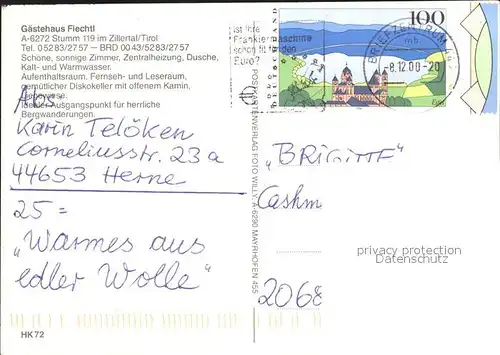 Gästehaus Fiechtl
A-6272 Stumm 119 im Zillertal/Tirol
Tel. 05283/2757 – BRD 0043/5283/2757
Schöne, sonnige Zimmer, Zentralheizung, Dusche,
Kalt- und Warmwasser.
Aufenthaltsraum, Fernseh- und Leseraum,
gemütlicher Diskokeller mit offenem Kamin,
Idealer Ausgangspunkt für herrliche
Bergwanderungen.
Abs.
Karin Telöken
Corneliusstr. 23 a
44653 Herne
25 =
„Warmes aus
edler Wolle"
HK 72
Ist Ihre
Frankiermaschine
schon fit für den
Euro?
POSTKARTENVERLAG FOTO WILLY, A-6290 MAYRHOFEN 455
DEUTSCHLAND
100
Eifel
BRIEFZENTRUM 44
mb
-8.12.00-20
„BRIGITTE"
Cashm
2068
privacy protection
Datenschutz